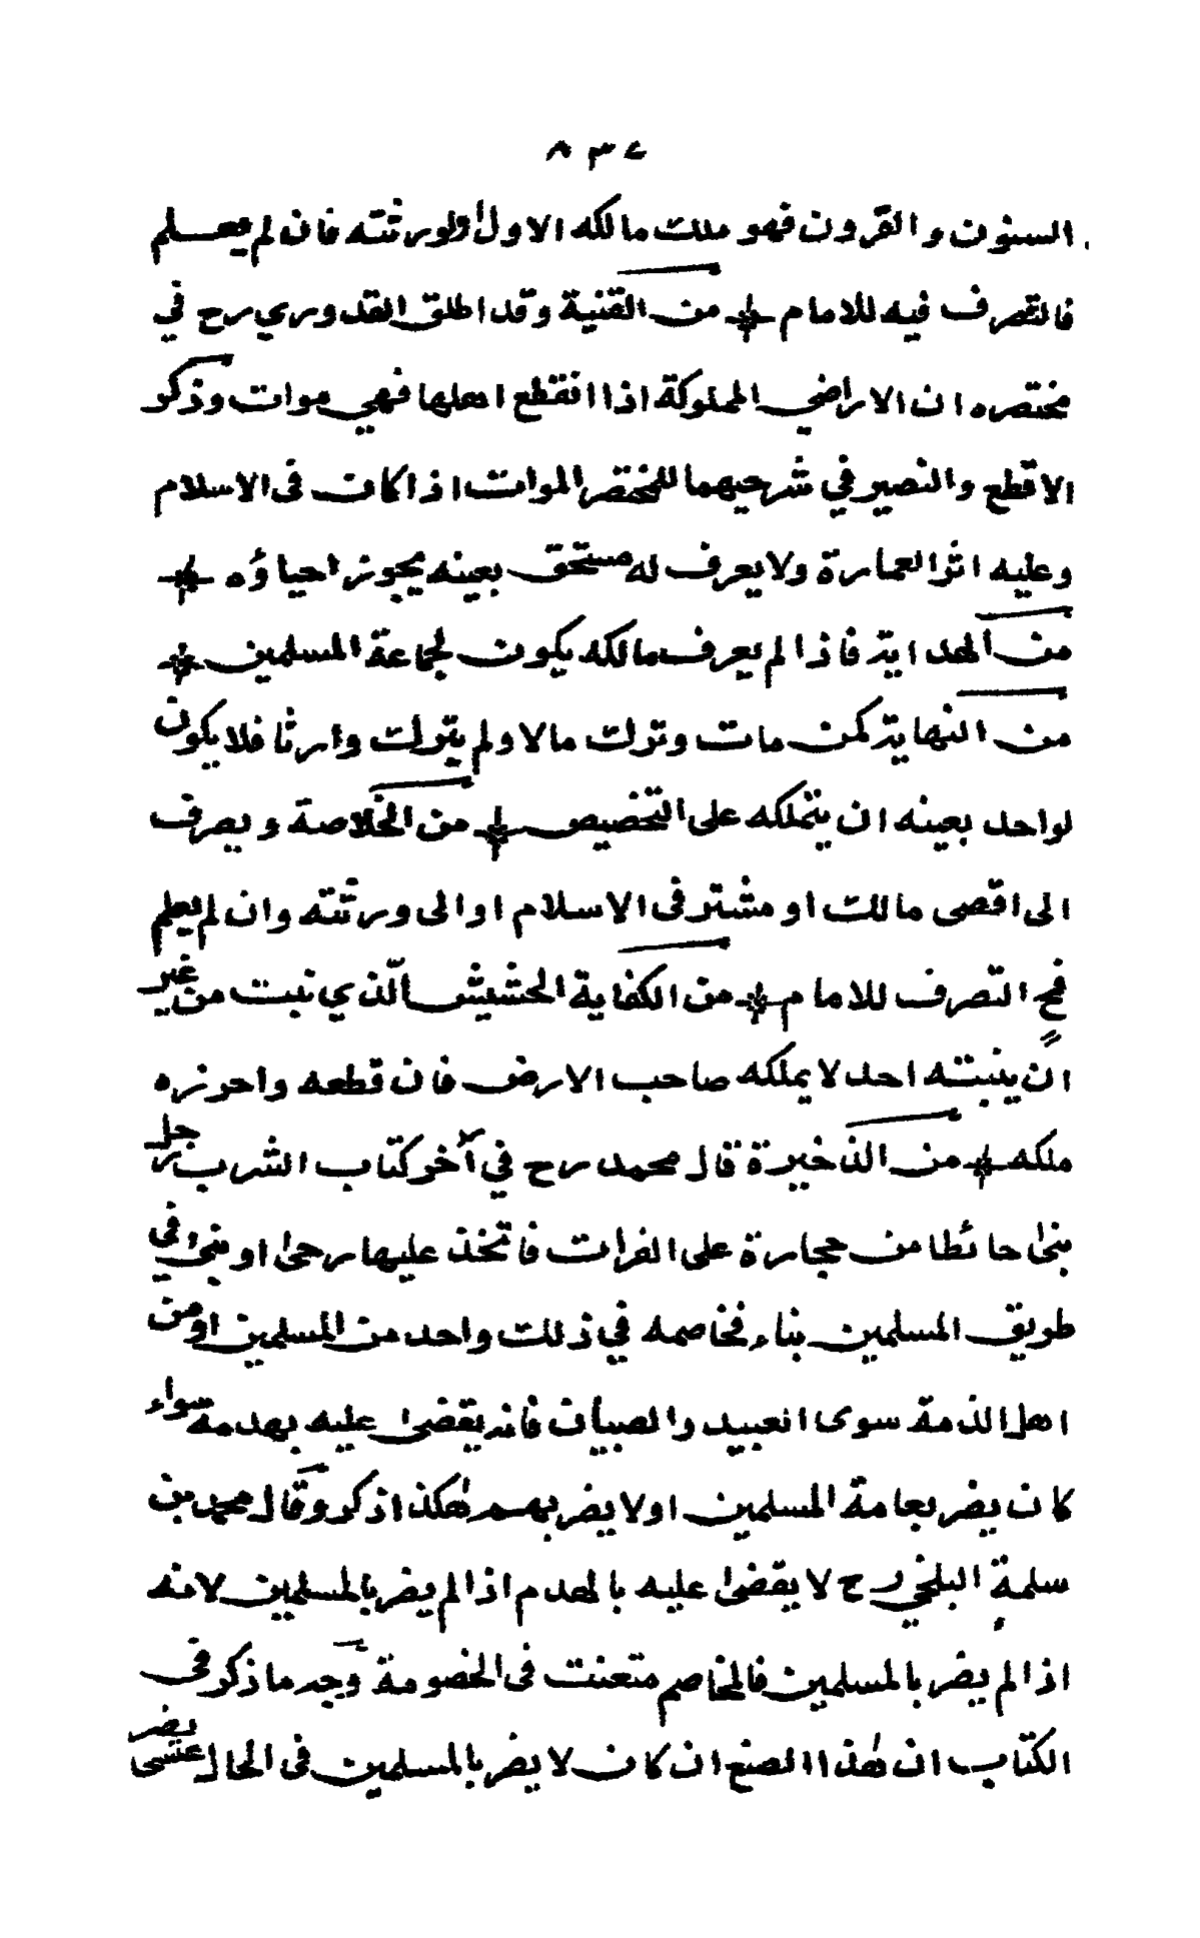 ٨٣٧
السنون والقرون فهو ملك مالكه الاول ولورثته فان لم يعلم
فالتصرف فيه للامام من القنية وقد اطلق القدوري رح في
مختصره ان الاراضي المملوكة اذا انقطع اهلها فهي موات وذكر
الاقطع والنصير في شرحيهما للمختصر الموات اذا كان فى الاسلام
وعليه اثر العمارة ولا يعرف له مستحق بعينه يجوز احياؤه
من الهداية فاذا لم يعرف مالكه يكون لجماعة المسلمين
من النهاية كمن مات وترك مالا ولم يترك وارثا فلا يكون
لواحد بعينه ان يتملكه على التخصيص من الخلاصة ويصرف
الى اقصى مالك او مشتر فى الاسلام او الى ورثته وان لم يعلم
فح التصرف للامام من الكفاية الحشيش الّذي نبت من غير
ان ينبته احد لا يملكه صاحب الارض فان قطعه واحرزه
ملكه من الذخيرة قال محمد رح في آخر كتاب الشرب رجل
بنىٰ حائطا من حجارة على الفرات فاتخذ عليها رحىٰ او بنىٰ في
طريق المسلمين بناء فخاصمه في ذلك واحد من المسلمين او من
اهل الذمة سوى العبيد والصبيان فانه يقضىٰ عليه بهدمه سواء
كان يضر بعامة المسلمين اولا يضر بهم هٰكذا ذكر وقال محمد بن
سلمة البلخي رح لا يقضىٰ عليه بالهدم اذا لم يضر بالمسلمين لانه
اذا لم يضر بالمسلمين فالمخاصم متعنت فى الخصومة وجه ما ذكر فى
الكتاب ان هٰذا الصنع ان كان لا يضر بالمسلمين فى الحال عسى يضر